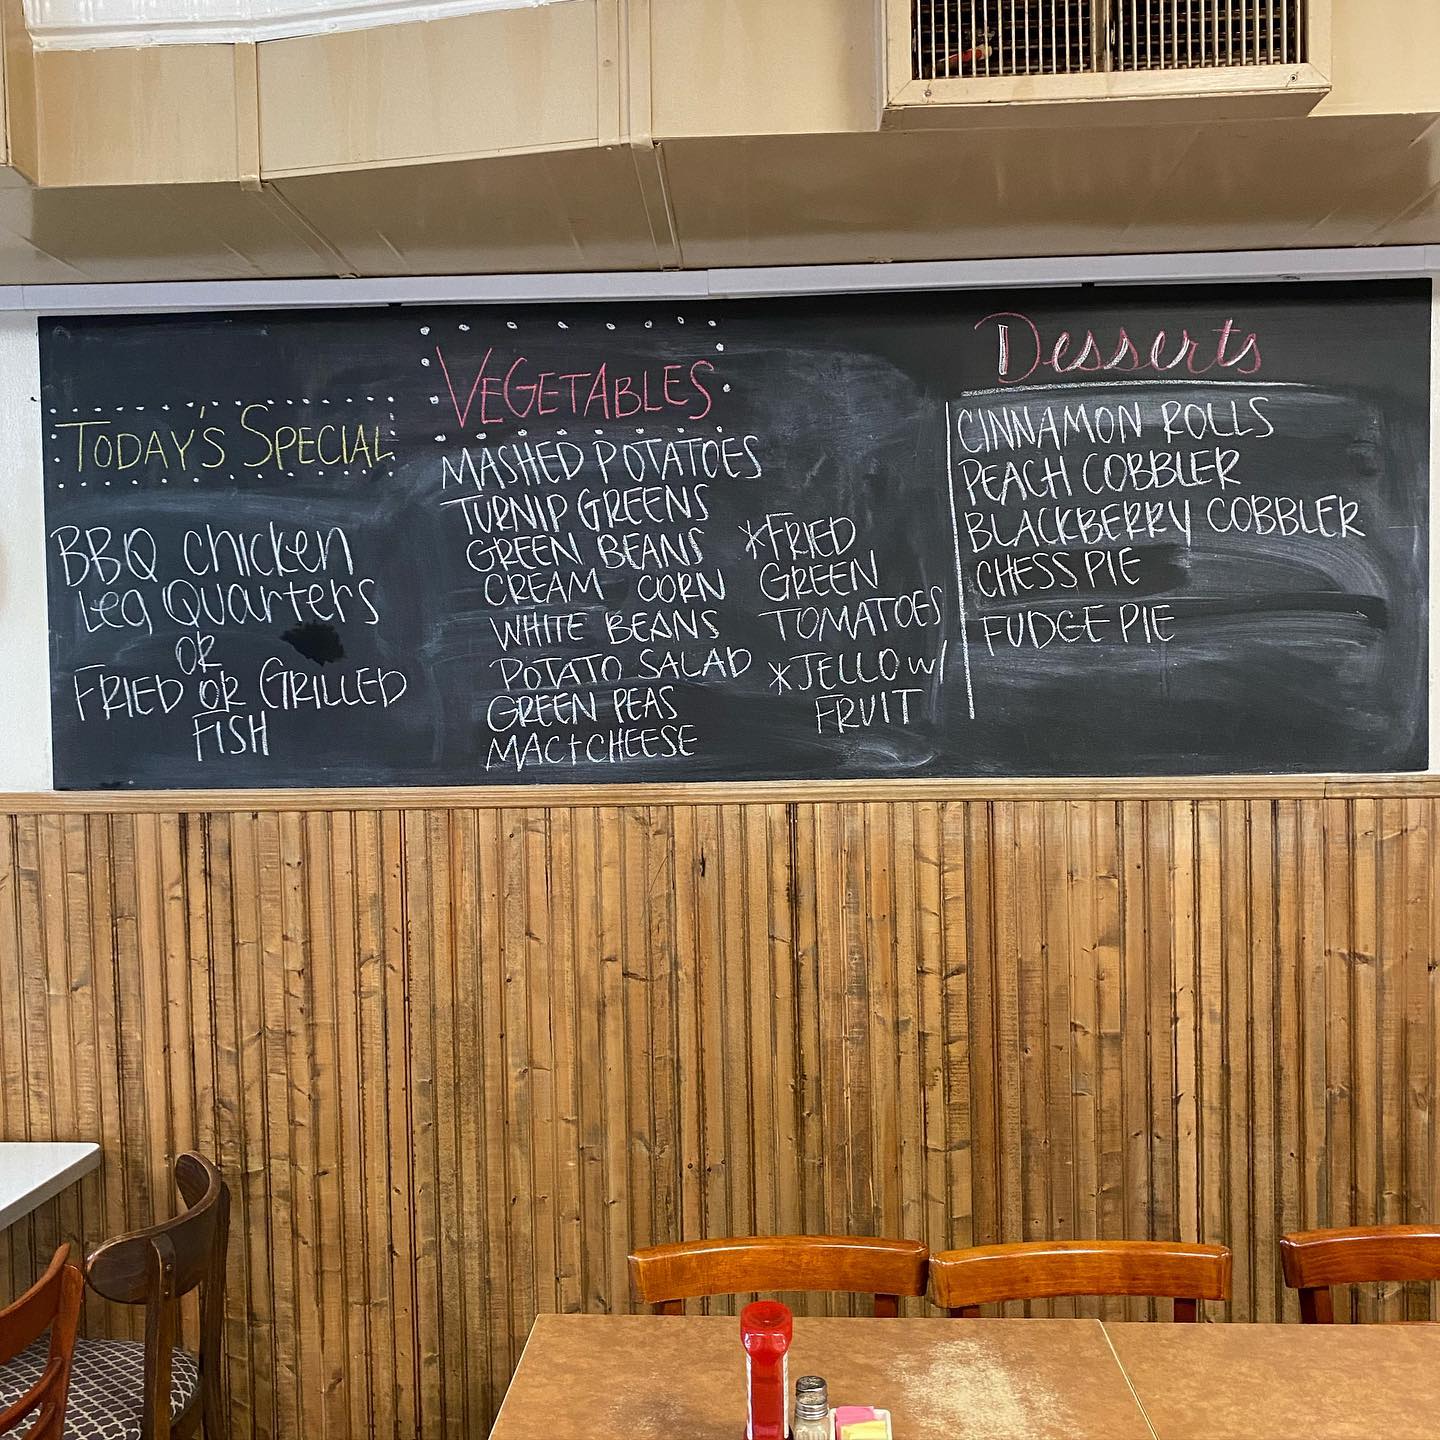 TODAY'S SPECIAL
BBQ chicken
Leg Quarters
OR
FRIED OR GRILLED
FISH
VEGETABLES
MASHED POTATOES
TURNIP GREENS
GREEN BEANS
CREAM CORN
WHITE BEANS
POTATO SALAD
GREEN PEAS
MAC+CHEESE
*FRIED
GREEN
TOMATOES
*JELLO w/
FRUIT
Desserts
CINNAMON ROLLS
PEACH COBBLER
BLACKBERRY COBBLER
CHESS PIE
FUDGE PIE